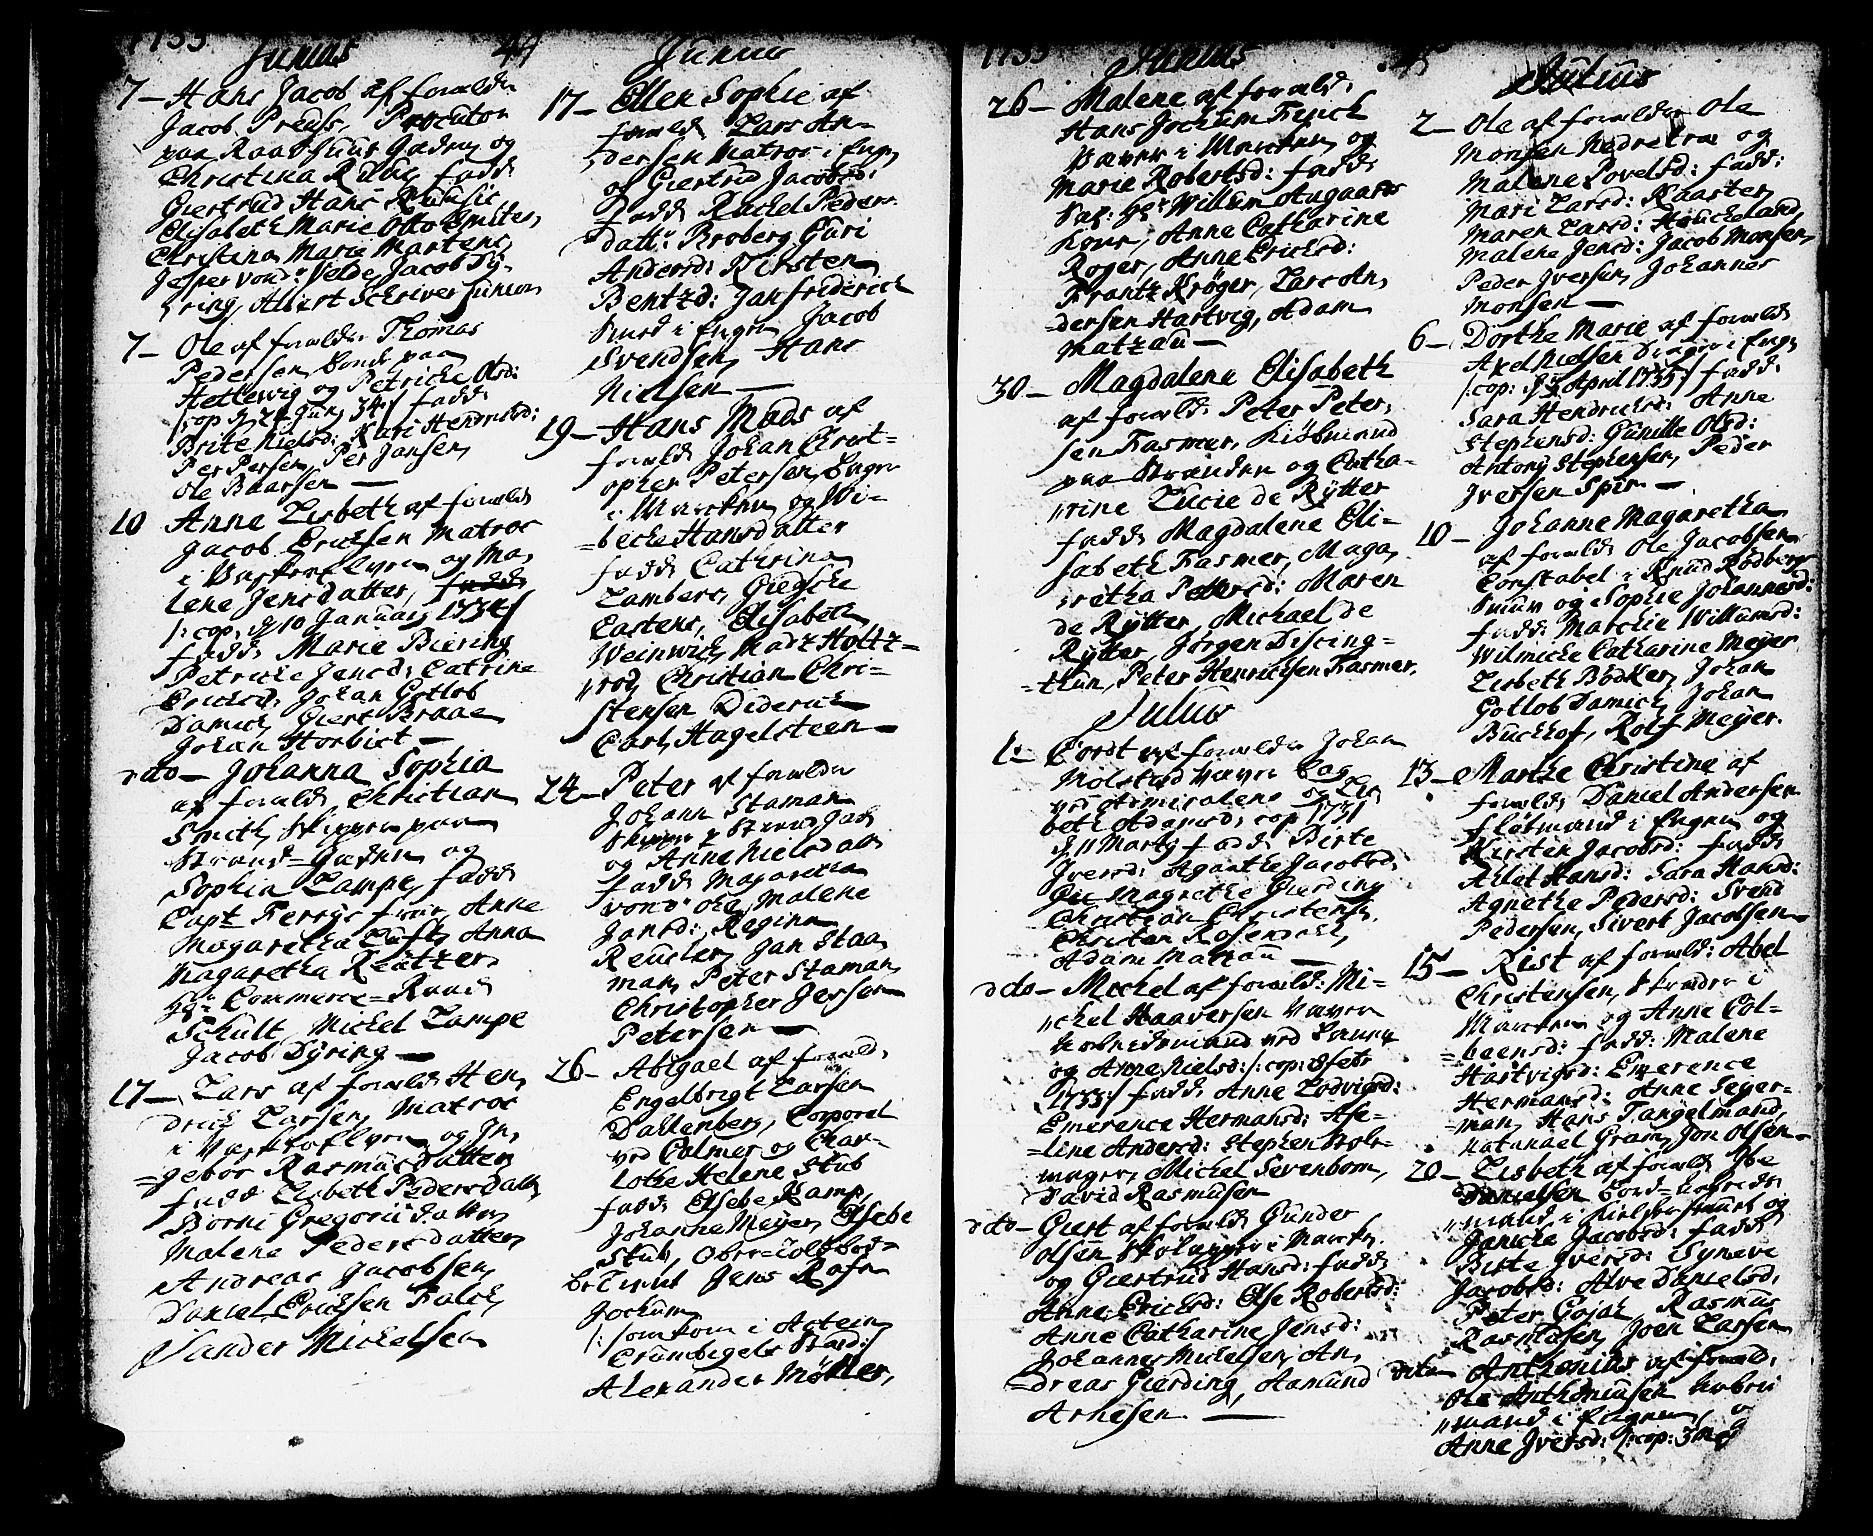 1735 Junius 44
7 – Hans Jacob af forælder
Jacob Preuss, Procutor
paa Raadhuus Gaden og
Christina R fadd:
Giertrud Hans
Elisabeth Marie Otto Smittes,
Christina Maria Martens
Jesper vond: Velde, Jacob Dy-
ring, Albert Schriver Junior
7 – Ole af forælder Thomas
Pedersen bonde paa
Hetlevig og Petriche Olsd:
/:cop d 24 Janv 34:/ fadd:
Brite Nielsd: Kari Hendrichsd:
Per Persen, Per Jansen,
Ole Baarsen –
10 Anne Lisbeth af forælder
Jacob Erichsen Matros
i og Ma,
lene Jensdatter,
/: cop, d 10 Januarij 1734:/
fadd: Marie Biering
Petriche Jensd: Catrine
Erichsd: Johan Gotlob
Damich, Giert Braae
Johan Horbiet –
dito – Johanna Sophia
af forældr Christian
Smith, skipper paa
Strand=Gaden og
Sophia Lampe, fadd:
Capt Ferrys frue, Anne
Magaretha Cruft, Anna
Magaretha Reützer,
Hr Commerce=Raad
Schult, Michel Lampe
Jacob Dyring –
17 – Lars af forældr Hen,
drich Larsen, Matros
i og In,
=gebor Rasmusdatter
fadd Lisbeth Pedersdatt,
Börni Gregorii datter
Malene Pedersdatter,
Andreas Jacobsen,
Daniel Erichsen Falch,
Sander Michelsen
Junius
17 – Ellen Sophie af
forældr Lars An=
dersen Matros i Engen
og Giertrud Jacobsd:
fadd: Rachel Peders=
datt: Broberg, Guri
Andersd: Kirsten
Bentzd: Jan Friderich
Smed i Engen Jacob
Svendsen, Hans
Nielsen –
19 – Hans Mads af
forældr Johan Christ=
opher Petersen, bager
i Marchen og Wi=
=beche Hansdatter
fadd: Cathrina
Lambers, Giedsche
Castens, Elisabeth
Weinwich, Madz Holtz=
rod, Christian Chri=
stensen Diderich
Carl, Hagelsteen –
24 – Peter af forældr
Johann Staman
Skipper p Strand Gad
og Anne Nielsdatt
fadd: Magaretha
vond: ohe, Malene
Jansd: Regina
Reucler, Jan Staa
man, Peter Staman,
Christopher Jessen
Petersen –
26 – Abigael af forældr
Engelbrigt Larsen
Dallenberg, Corporal
ved Calmer og Char=
lotte Helene Stub
fadd: Elsebe Kamp,
Johanna Meyer, Elsebe
Stub, Ober=told bed=
betient Jens Rafn
Jochum
/: som kom i Astein
Crambigels Sted:/
Alexander Møller,
1735 Junius 45
26 – Malene af forældr
Hans Jochum Fench
Væver i Marchen og
Marie Robertsd: fadd:
Sal: Hr Willum Augaards
Kone, Anne Catharine
Roger, Anne Erichsd:
Frantz Krøger, Lars An,
=dersen Hartvig, Adam
Matzau –
30 – Magdalena Elisabeth
af forældr Peter Peter,
sen Fasmer, Kiöbmand
paa Stranden og Catha=
rine Lucie de Rÿtter
fadd: Magdalene Eli=
sabeth Fasmer, Maga,
retha Petersd: Maren
de Rÿtter, Michael de
Rÿtter, Jörgen Discing=
=thun, Peter Henrichsen Fasmer,
Julius
1 – Cordt af forældr Johan
Molsted Væver bag
ved Admiralens og Lis
beth Adamsd: cop 1731
d 11 Marty fadd: Birte
Iversd: Aganthe Jacobsd:
Magrethe Gierding
Christian Christens,
Christen Rosendahl
Adam Matzau –
dito – Michel af forældr: Mi=
chel Haaversen Væver
ved
og Anne Nielsd: /:cop: d febr
1733:/ fadd: Anne Lodvigsd:
Emerence Hermansd: Ase=
=line Andersd: Stephen
mager, Michel Sevenbom,
David Rasmusen
dito – Giert af forældr Gunder
Olsen i March:
og Giertrud Hansd: fadd:
Anne Erichsd: Else Robertsd:
Anne Catharine Jensd:
Johannes Michelsen, An,
=dreas Gierding, Aamund
Arnesen –
Julius
2 – Ole af forælder Ole
Monsen Nedretræ og
Malene Povelsd: fadd:
Mari Larsd: Raaster,
Maren Larsd: Houcheland,
Malene Jensd: Jacob Monsen,
Peder Iversen, Johannes
Monsen –
6 – Dorthe Marie af forældr
Axel Nielsen Drager i Engen
/:cop: d 3 April 1735:/ fadd:
Sara Hendrichsd: Anne
Stephensd: Gunille Olsd:
Antony Stephensen, Peder
Iversen Spir –
10 – Johanne Magaretha
af forældr Ole Jacobsen
Constabel i Knud Rodbergs
Smuw og Sophie Johannesd:
fadd: Marchie Willumsd:
Wilmiche Catharine Meyer
Lisbeth Bödker, Johan
Gotlob Damich, Johan
Buchhof, Rolf Meyer.
13 – Marthe Christine af
forældr Daniel Andersen
flötmand i Engen og
Kirsten Jacobsd: fadd:
Ahlet Hansd: Sara Hansd:
Agnethe Pedersd: Svend
Pedersen, Sivert Jacobsen –
15 – Rist af forældr: Abel
Christensen, Skræder i
Marchen og Anne Col=
=beensd: fadd: Malene
Hartvigsd: Emerence
Hermansd: Anne Seger=
=man, Hans Tangelmand,
Natanael Gram, Jon Olsen –
20 – Lisbeth af forældr Ibe
Danielsen bord=
mand i og
Janiche Jacobsd: fadd:
Birte Iversd: Syneve
Jacobsd: Alve Danielsd:
Peter Gojak, Rasmus
Rasmusen, Joen Larsen
dito Anthonius af forældr
Ole Anthoniusen
mand i Engen,
Anne Iversd: /:cop: 3